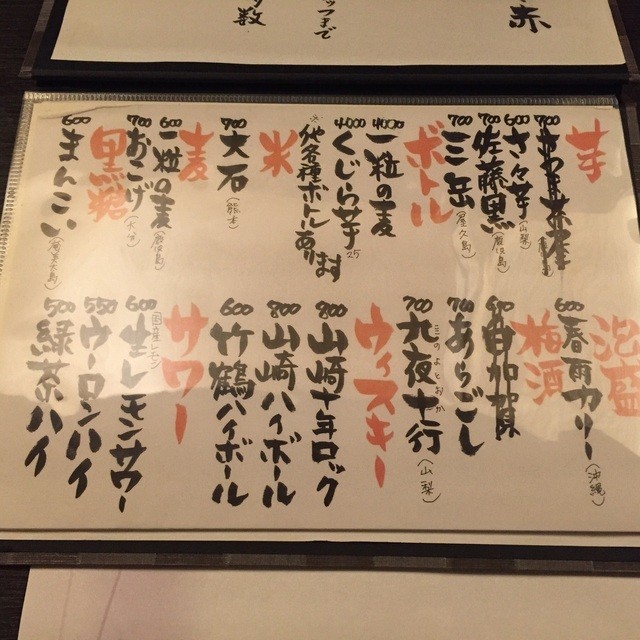 赤
ップまで
多数
芋
700
600 さゝ芋(山梨)
700 佐藤黒(鹿児島)
700 三岳(屋久島)
ボトル
4000 一粒の麦
4000 くじら芋25
※他各種ボトルあります
米
700 大石(熊本)
麦
600 一粒の麦(鹿児島)
700 おこげ(大分)
黒糖
600 まんこい(奄美大島)
泡盛
600 春雨カリー(沖縄)
梅酒
600 加賀梅
700 あらごし
700 九夜十行(山梨)
ウィスキー
800 山崎十年ロック
800 山崎ハイボール
600 竹鶴ハイボール
サワー
600 生レモンサワー
国産レモン
550 ウーロンハイ
500 緑茶ハイ